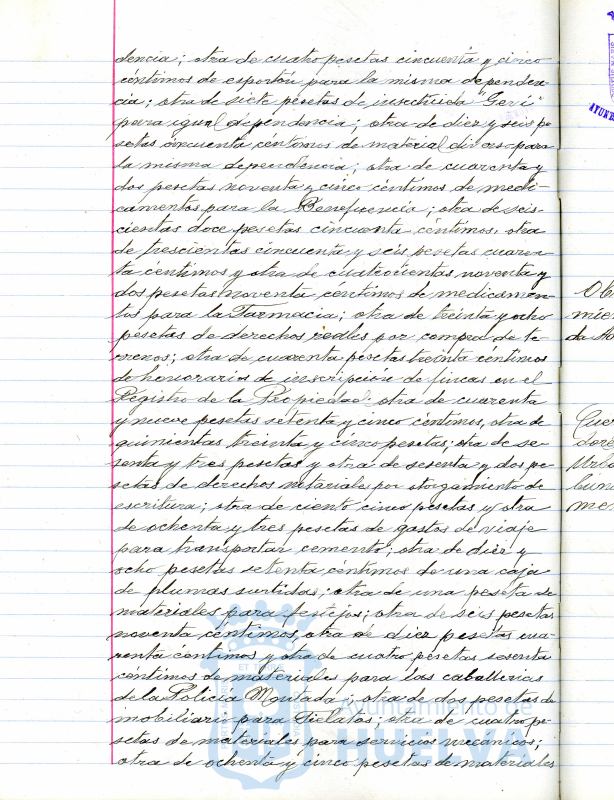 dencia; otra de cuatro pesetas cincuenta y cinco
céntimos de esportón para la misma dependen-
cia; otra de siete pesetas de insecticida "Geri"
para igual dependencia; otra de diez y seis pe-
setas cincuenta céntimos de material diverso para
la misma dependencia; otra de cuarenta y
dos pesetas noventa y cinco céntimos de medi-
camentos para la Beneficencia; otra de seis-
cientas doce pesetas cincuenta céntimos, otra
de trescientas cincuenta y seis pesetas cuaren-
ta céntimos y otra de cuatrocientas noventa y
dos pesetas noventa céntimos de medicamen-
tos para la Farmacia; otra de treinta y ocho
pesetas de derechos reales por compra de te-
rrenos; otra de cuarenta pesetas treinta céntimos
de honorarios de inscripción de fincas en el
Registro de la Propiedad; otra de cuarenta
y nueve pesetas setenta y cinco céntimos, otra de
quinientas treinta y cinco pesetas, otra de se-
senta y tres pesetas y otra de sesenta y dos pe-
setas de derechos notariales por otorgamiento de
escritura; otra de ciento cinco pesetas y otra
de ochenta y tres pesetas de gastos de viaje
para transportar cemento; otra de diez y
ocho pesetas setenta céntimos de una caja
de plumas surtidas; otra de una peseta de
materiales para festejos; otra de seis pesetas
noventa céntimos, otra de diez pesetas cua-
renta céntimos y otra de cuatro pesetas sesenta
céntimos de materiales para las caballerías
de la Policía Montada; otra de dos pesetas de
mobiliario para Fielatos; otra de cuatro pe-
setas de materiales para servicios mecánicos;
otra de ochenta y cinco pesetas de materiales
Ayuntamiento de
HUELVA